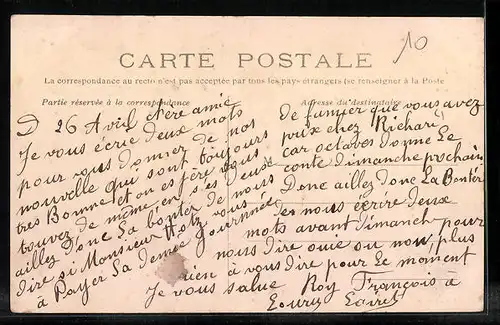 10
CARTE POSTALE
La correspondance au recto n'est pas acceptée par tous les pays étrangers (se renseigner à la Poste
Partie réservée à la correspondance
Adresse du destinataire
D 26 Avril chère amie
Je vous écrie deux mots
pour vous donner de nos
nouvelle qui sont toujours
tres Bonne et on espère vous
trouvez de même, en
aillez donc La bonter de nous
dire si Monsieur vous
à Payer Sa demie Journnée
de fumier que vous avez
prix chez Richard
car octaves donne Le
conte dimanche prochain
Donc aillez donc La Bontér
de nous écrire deux
mots avant dimanch pour
nous dire ouie ou non, plus
rien à vous dire pour le moment
Je vous salue Roy François à